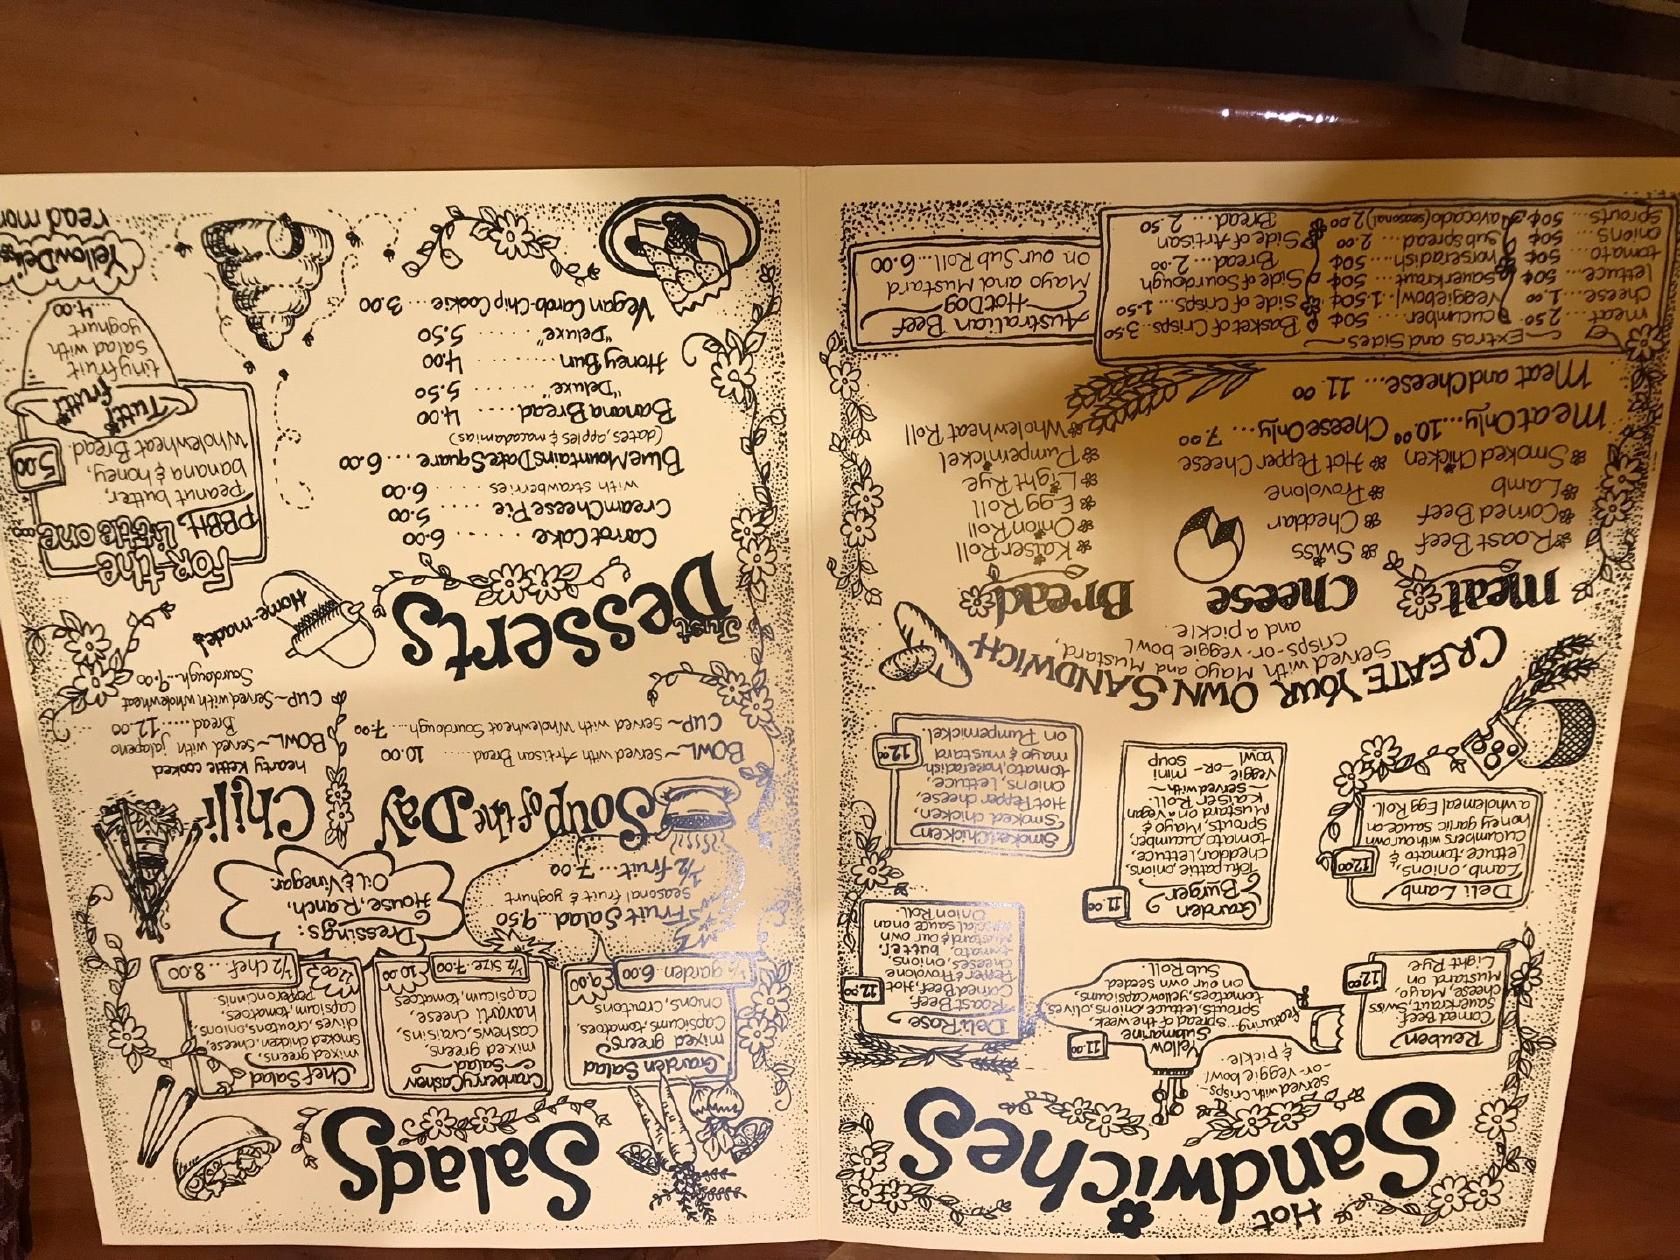 Hot
Sandwiches
served with crisps
-or- veggie bowl
& pickle.
Reuben
Corned Beef,
Sauerkraut, Swiss
cheese, Mayo,
Mustard on
Light Rye.
12.00
Yellow
Submarine
11.00
featuring
spread of the week,
sprouts, lettuce, onions, olives,
tomatoes, yellow capsicums
on our own seeded
Sub Roll.
Deli Rose
Roast Beef,
Corned Beef, Hot
Pepper & Provolone
cheeses, onions,
tomato, butter,
Mustard & our own
special sauce on an
Onion Roll.
12.00
Deli Lamb
Lamb, onions,
lettuce, tomato &
cucumbers with our own
honey garlic sauce on
a wholemeal Egg Roll.
12.00
Garden
Burger
11.00
Tofu pattie, onions,
cheddar, lettuce,
tomato, cucumber,
Sprouts, Mayo &
Mustard on a Vegan
Kaiser Roll.
~served with~
veggie -or- mini
bowl soup
Smoked Chicken
Smoked chicken,
Hot Pepper cheese,
onions, lettuce,
tomato, horseradish
mayo & mustard
on Pumpernickel.
12.00
CREATE YOUR OWN SANDWICH
Served with Mayo and Mustard,
crisps -or- veggie bowl
and a pickle.
Meat
Roast Beef
Corned Beef
Lamb
Smoked Chicken
Cheese
Swiss
Cheddar
Provolone
Hot Pepper Cheese
Bread
Kaiser Roll
Onion Roll
Egg Roll
Light Rye
Pumpernickel
Wholewheat Roll
Meat Only.... 10.00 Cheese Only... 7.00
Meat and Cheese... 11.00
Extras and Sides
meat... 2.50
cheese... 1.00
lettuce... 50¢
tomato 50¢
onions 50¢
sprouts... 50¢
cucumber... 50¢
veggie bowl 1.50¢
sauerkraut 50¢
horseradish 50¢
sub spread... 2.00
avocado (seasonal) 2.00
Basket of Crisps.. 3.50
Side of Crisps... 1.50
Side of Sourdough
Bread... 2.00
Side of Artisan
Bread... 2.50
Australian Beef
Hot Dog
Mayo and Mustard
on our Sub Roll... 6.00
Salads
Garden Salad
mixed greens,
Capsicums, tomatoes
onions, croutons
9.00
1/2 garden 6.00
Cranberry Cashew
Salad
mixed greens
cashews, craisins,
havarti cheese,
capsicum, tomatoes
10.00
1/2 size 7.00
Chef Salad
mixed greens,
smoked chicken, cheese,
olives, croutons, onions,
capsicum, tomatoes,
pepperoncinis
12.00
1/2 chef... 8.00
Fruit Salad... 9.50
Seasonal fruit & yoghurt
1/2 fruit... 7.00
Dressings:
House, Ranch,
Oil & Vinegar.
Soup of the Day
BOWL~ Served with Artisan Bread.... 10.00
CUP~ Served with Wholewheat Sourdough.... 7.00
Chili
hearty kettle cooked
BOWL~ served with jalapeno
Bread...... 12.00
CUP~ Served with wholewheat
Sourdough... 9.00
Just
Desserts
Home-made!
Carrot Cake ...... 6.00
Cream Cheese Pie ... 5.00
with strawberries ...... 6.00
Blue Mountains Date Square .... 6.00
(dates, apples & macadamias)
Banana Bread..... 4.00
"Deluxe" ....... 5.50
Honey Bun ....... 4.00
"Deluxe" 5.50
Vegan Carob Chip Cookie ... 3.00
For the
Little one...
PBBH
Peanut butter,
banana & honey,
Wholewheat Bread
5.00
Tutti
frutti
tiny fruit
salad with
yoghurt
4.00
Yellow Deli
read mor